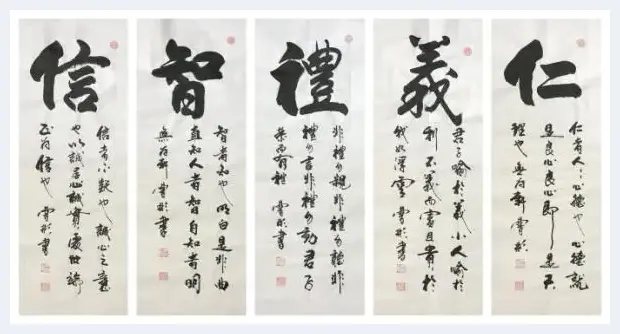 仁
仁者人之心德也心德就
是良心良心即是天
理也無为軒雲彤
義
君子喻於義小人喻於
利不義而富且貴於
我如浮雲雲彤書
禮
非禮勿視非禮勿聽非
禮勿言非禮勿動君子
恭而有禮雲彤書
智
智者知也明白是非曲
直知人者智自知者明
無为軒雲彤書
信
信者不欺也誠心之意
也以誠居心誠實處世端
正为信也雲彤書